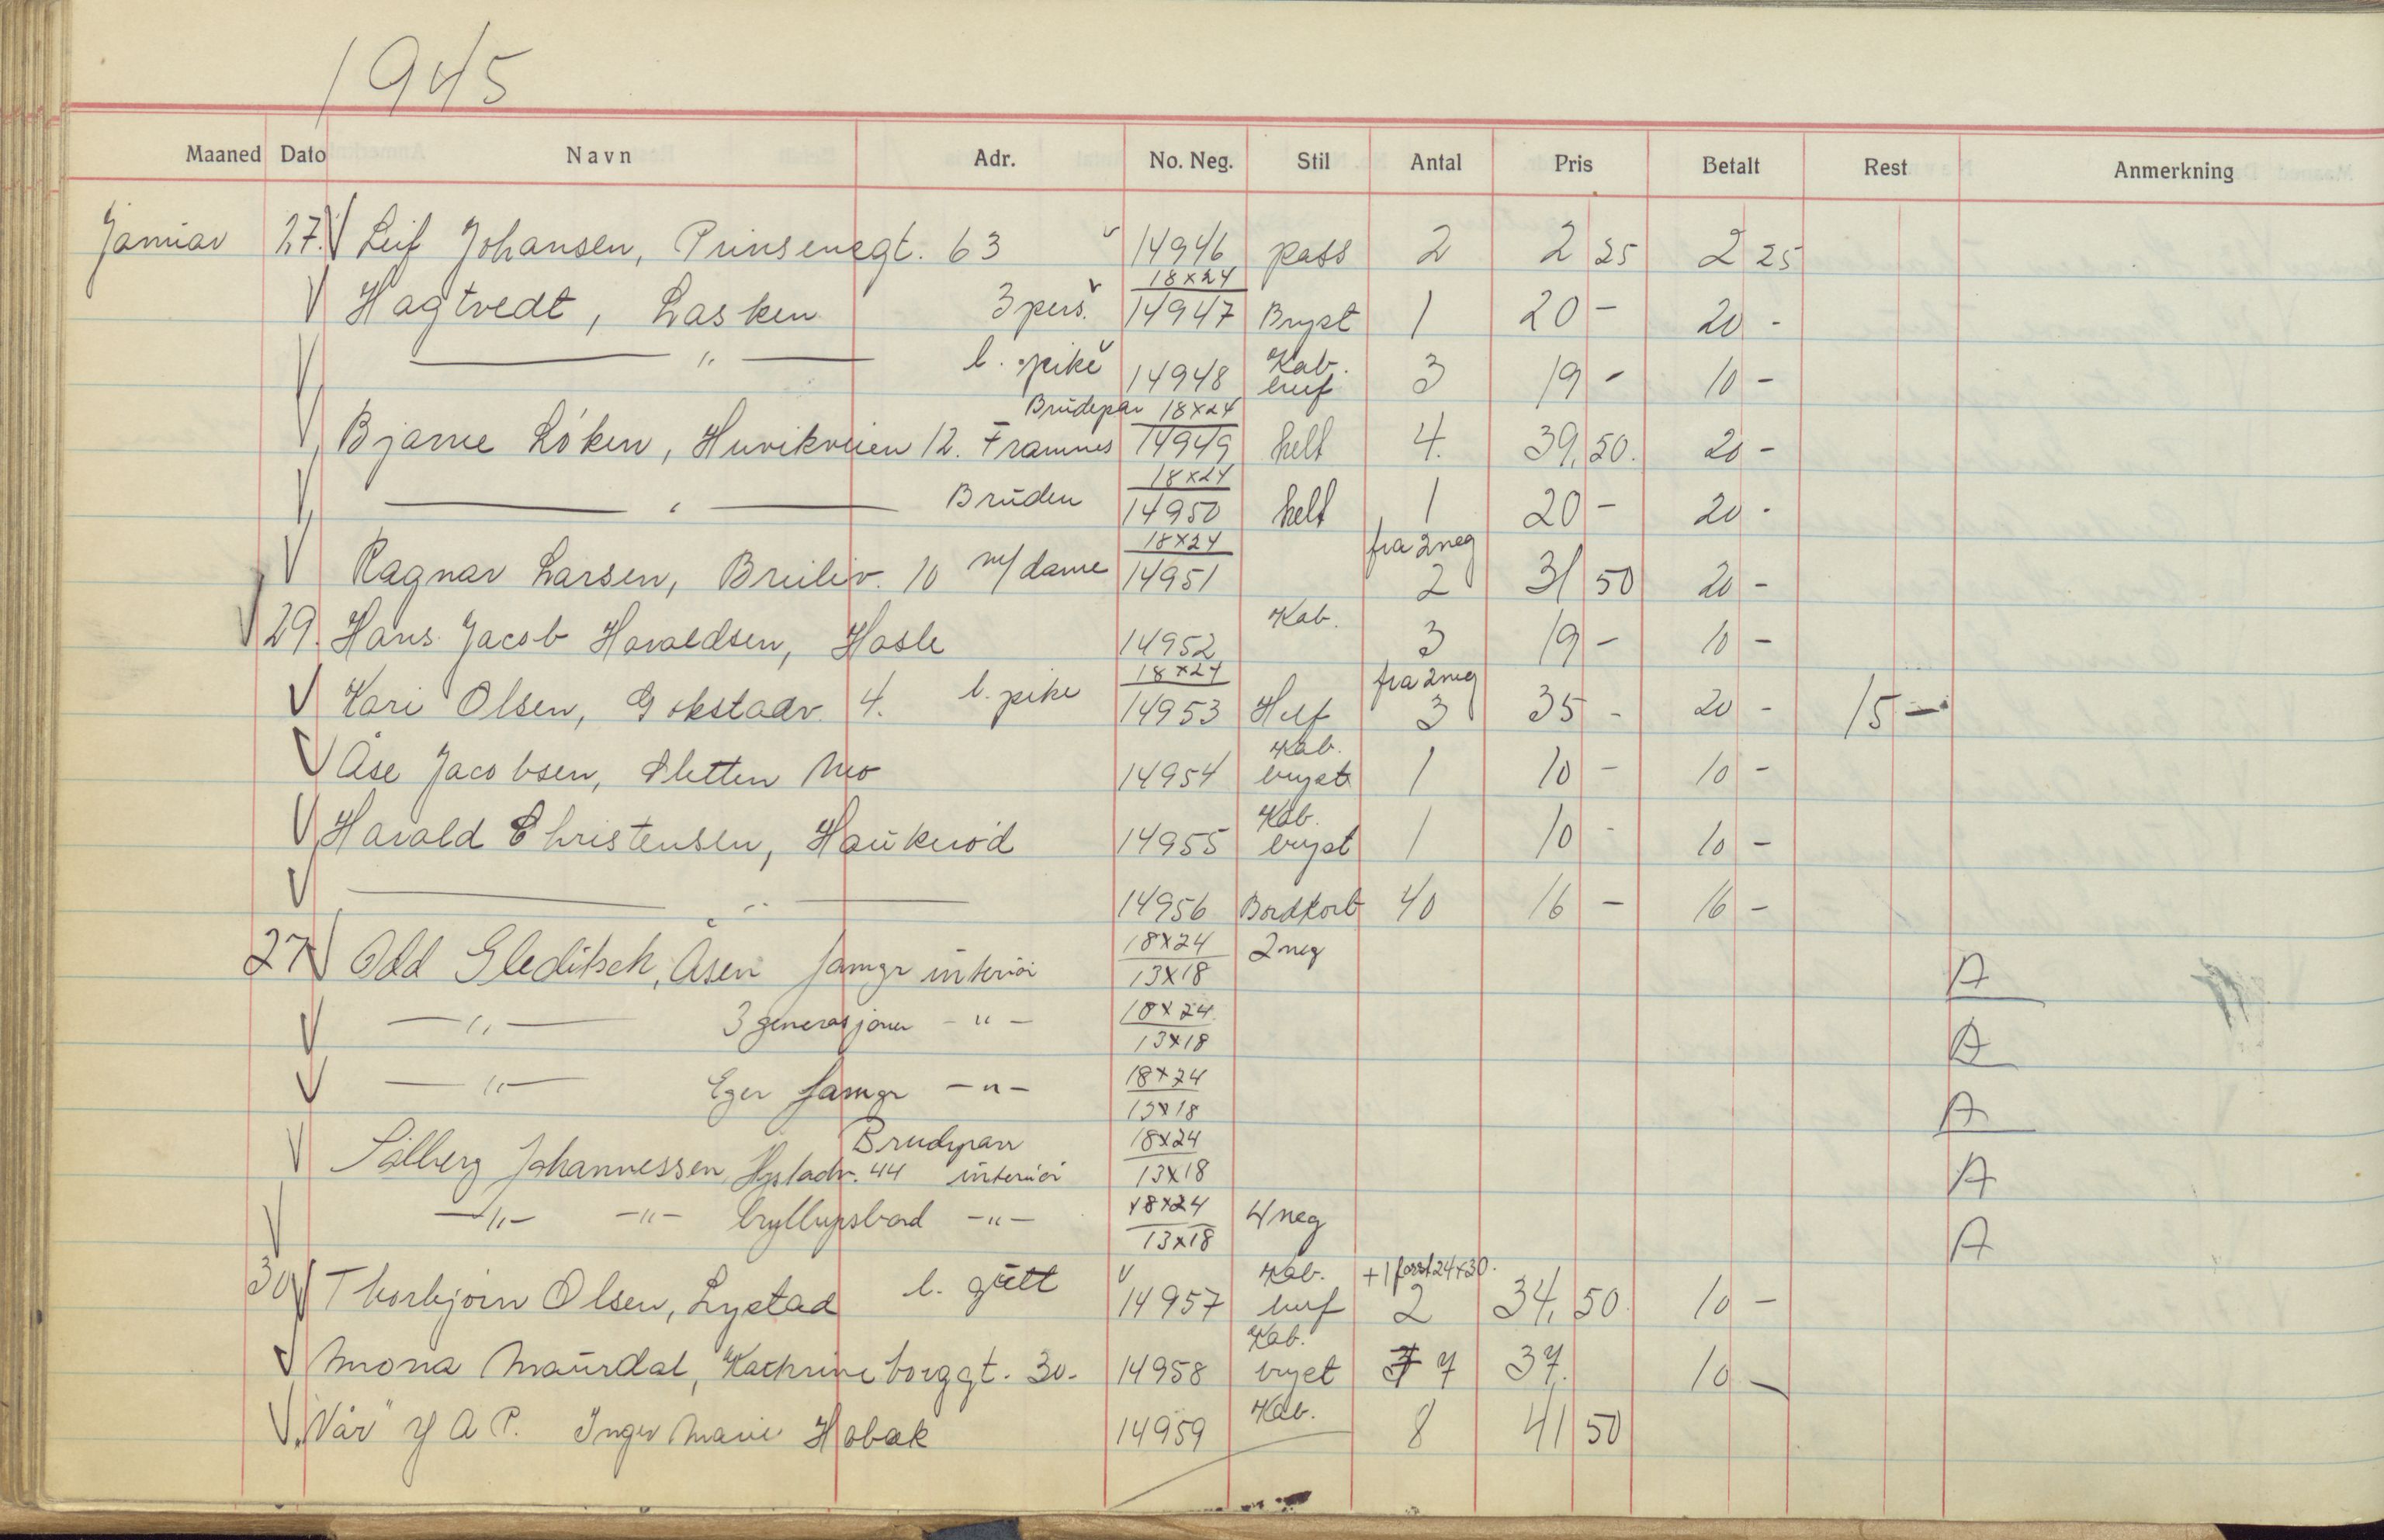 1945
Maaned Dato Navn Adr. No. Neg. Stil Antal Pris Betalt Rest Anmerkning
Januar 27. Leif Johansen, Prinsensgt. 63 14946 pass 2 2 25 2 25
18x24
Hagtvedt, Lasken 3 pers. 14947 Bryst 1 20 - 20 -
— " — l. pike 14948 Kab. 3 19 - 10 -
Brudepar 18x24
Bjarne Löken, Huvikveien 12. Framnes 14949 helt 4. 39,50. 20 -
18x24
— " — Bruden 14950 helt 1 20 - 20 -
18x24 fra 2 neg
Ragnar Larsen, Breiliv. 10 m/dame 14951 2 31 50 20 -
Kab.
29. Hans Jacob Haraldsen, Hasle 14952 3 19 - 10 -
18x24 fra 2 neg
Kari Olsen, Gokstadv. 4. l. pike 14953 3 35 - 20 - 15 -
Kab.
Åse Jacobsen, Sletten Mo 14954 bryst 1 10 - 10 -
Kab.
Harald Christensen, Haukeröd 14955 bryst 1 10 - 10 -
— " — 14956 Bordkort 40 16 - 16 -
27 Odd Gleditsch, Åsen famgr interiör 18x24 2 neg
13x18 A
— " — 3 generasjoner - " - 18x24
13x18 A
— " — Eger famgr - " - 18x24
13x18 A
Brudepar 18x24
Solberg Johannessen, 44 interiör 13x18 A
- " - - " - bryllupsbord - " - 18x24 4 neg
13x18 A
Kab. + 1 forst 24x30.
30 Thorbjörn Olsen, Lystad l. gutt 14957 2 34,50. 10 -
Kab.
Mona Maurdal, Kathrineborggt. 30. 14958 bryst 7 37. 10 -
"Vår" Y A P. Inger Marie Hobæk 14959 Kab. 8 41 50